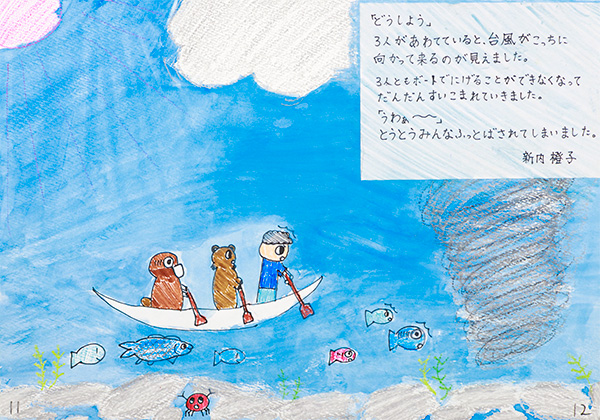 「どうしよう。」
3人があわてていると、台風がこっちに
向かって来るのが見えました。
3人ともボートでにげることができなくなって
だんだんすいこまれていきました。
「うわぁ〜〜。」
とうとうみんなふっとばされてしまいました。
新内 橙子
11
12